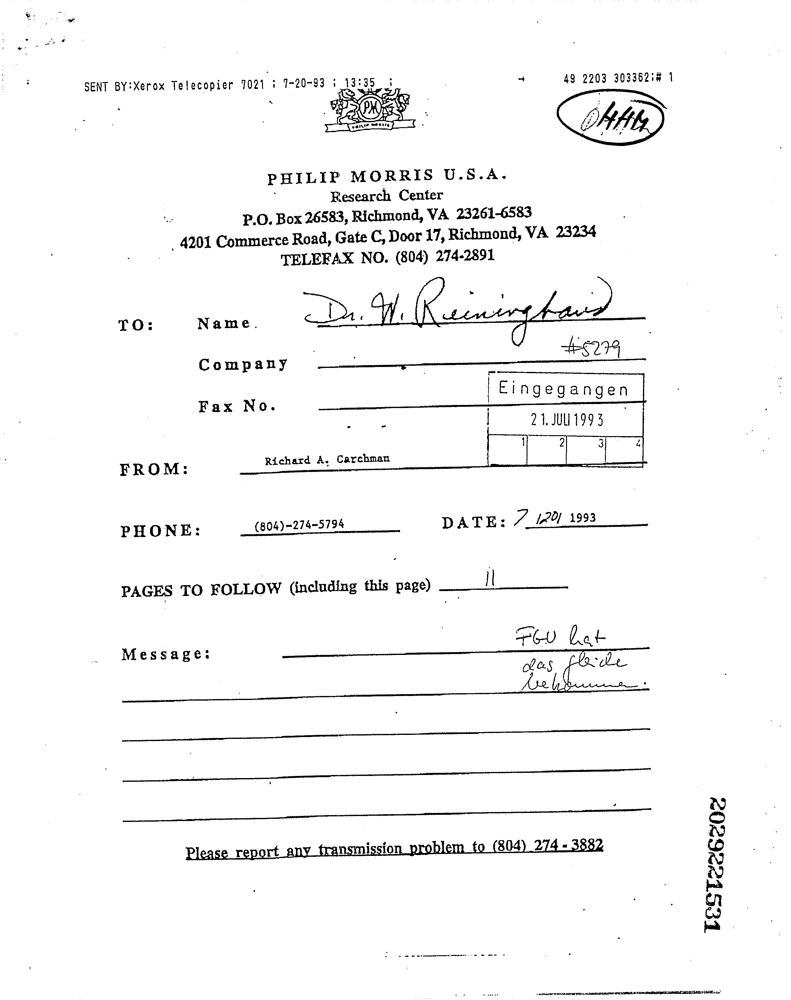 SENT BY:Xerox Telecopier 7021 ; 7-20-93 ; 13:35 ; → 49 2203 303362;# 1
PM
PHILIP MORRIS
PHILIP MORRIS U.S.A.
Research Center
P.O. Box 26583, Richmond, VA 23261-6583
4201 Commerce Road, Gate C, Door 17, Richmond, VA 23234
TELEFAX NO. (804) 274-2891
TO: Name. Dr. W. Reininghaus
#5279
Company
Eingegangen
Fax No.
21. JULI 1993
1 2 3 4
FROM: Richard A. Carchman
PHONE: (804)-274-5794 DATE: 7/20/1993
PAGES TO FOLLOW (including this page) 11
Message: FGU hat
das gleiche
bekommen.
Please report any transmission problem to (804) 274 - 3882
2029221531